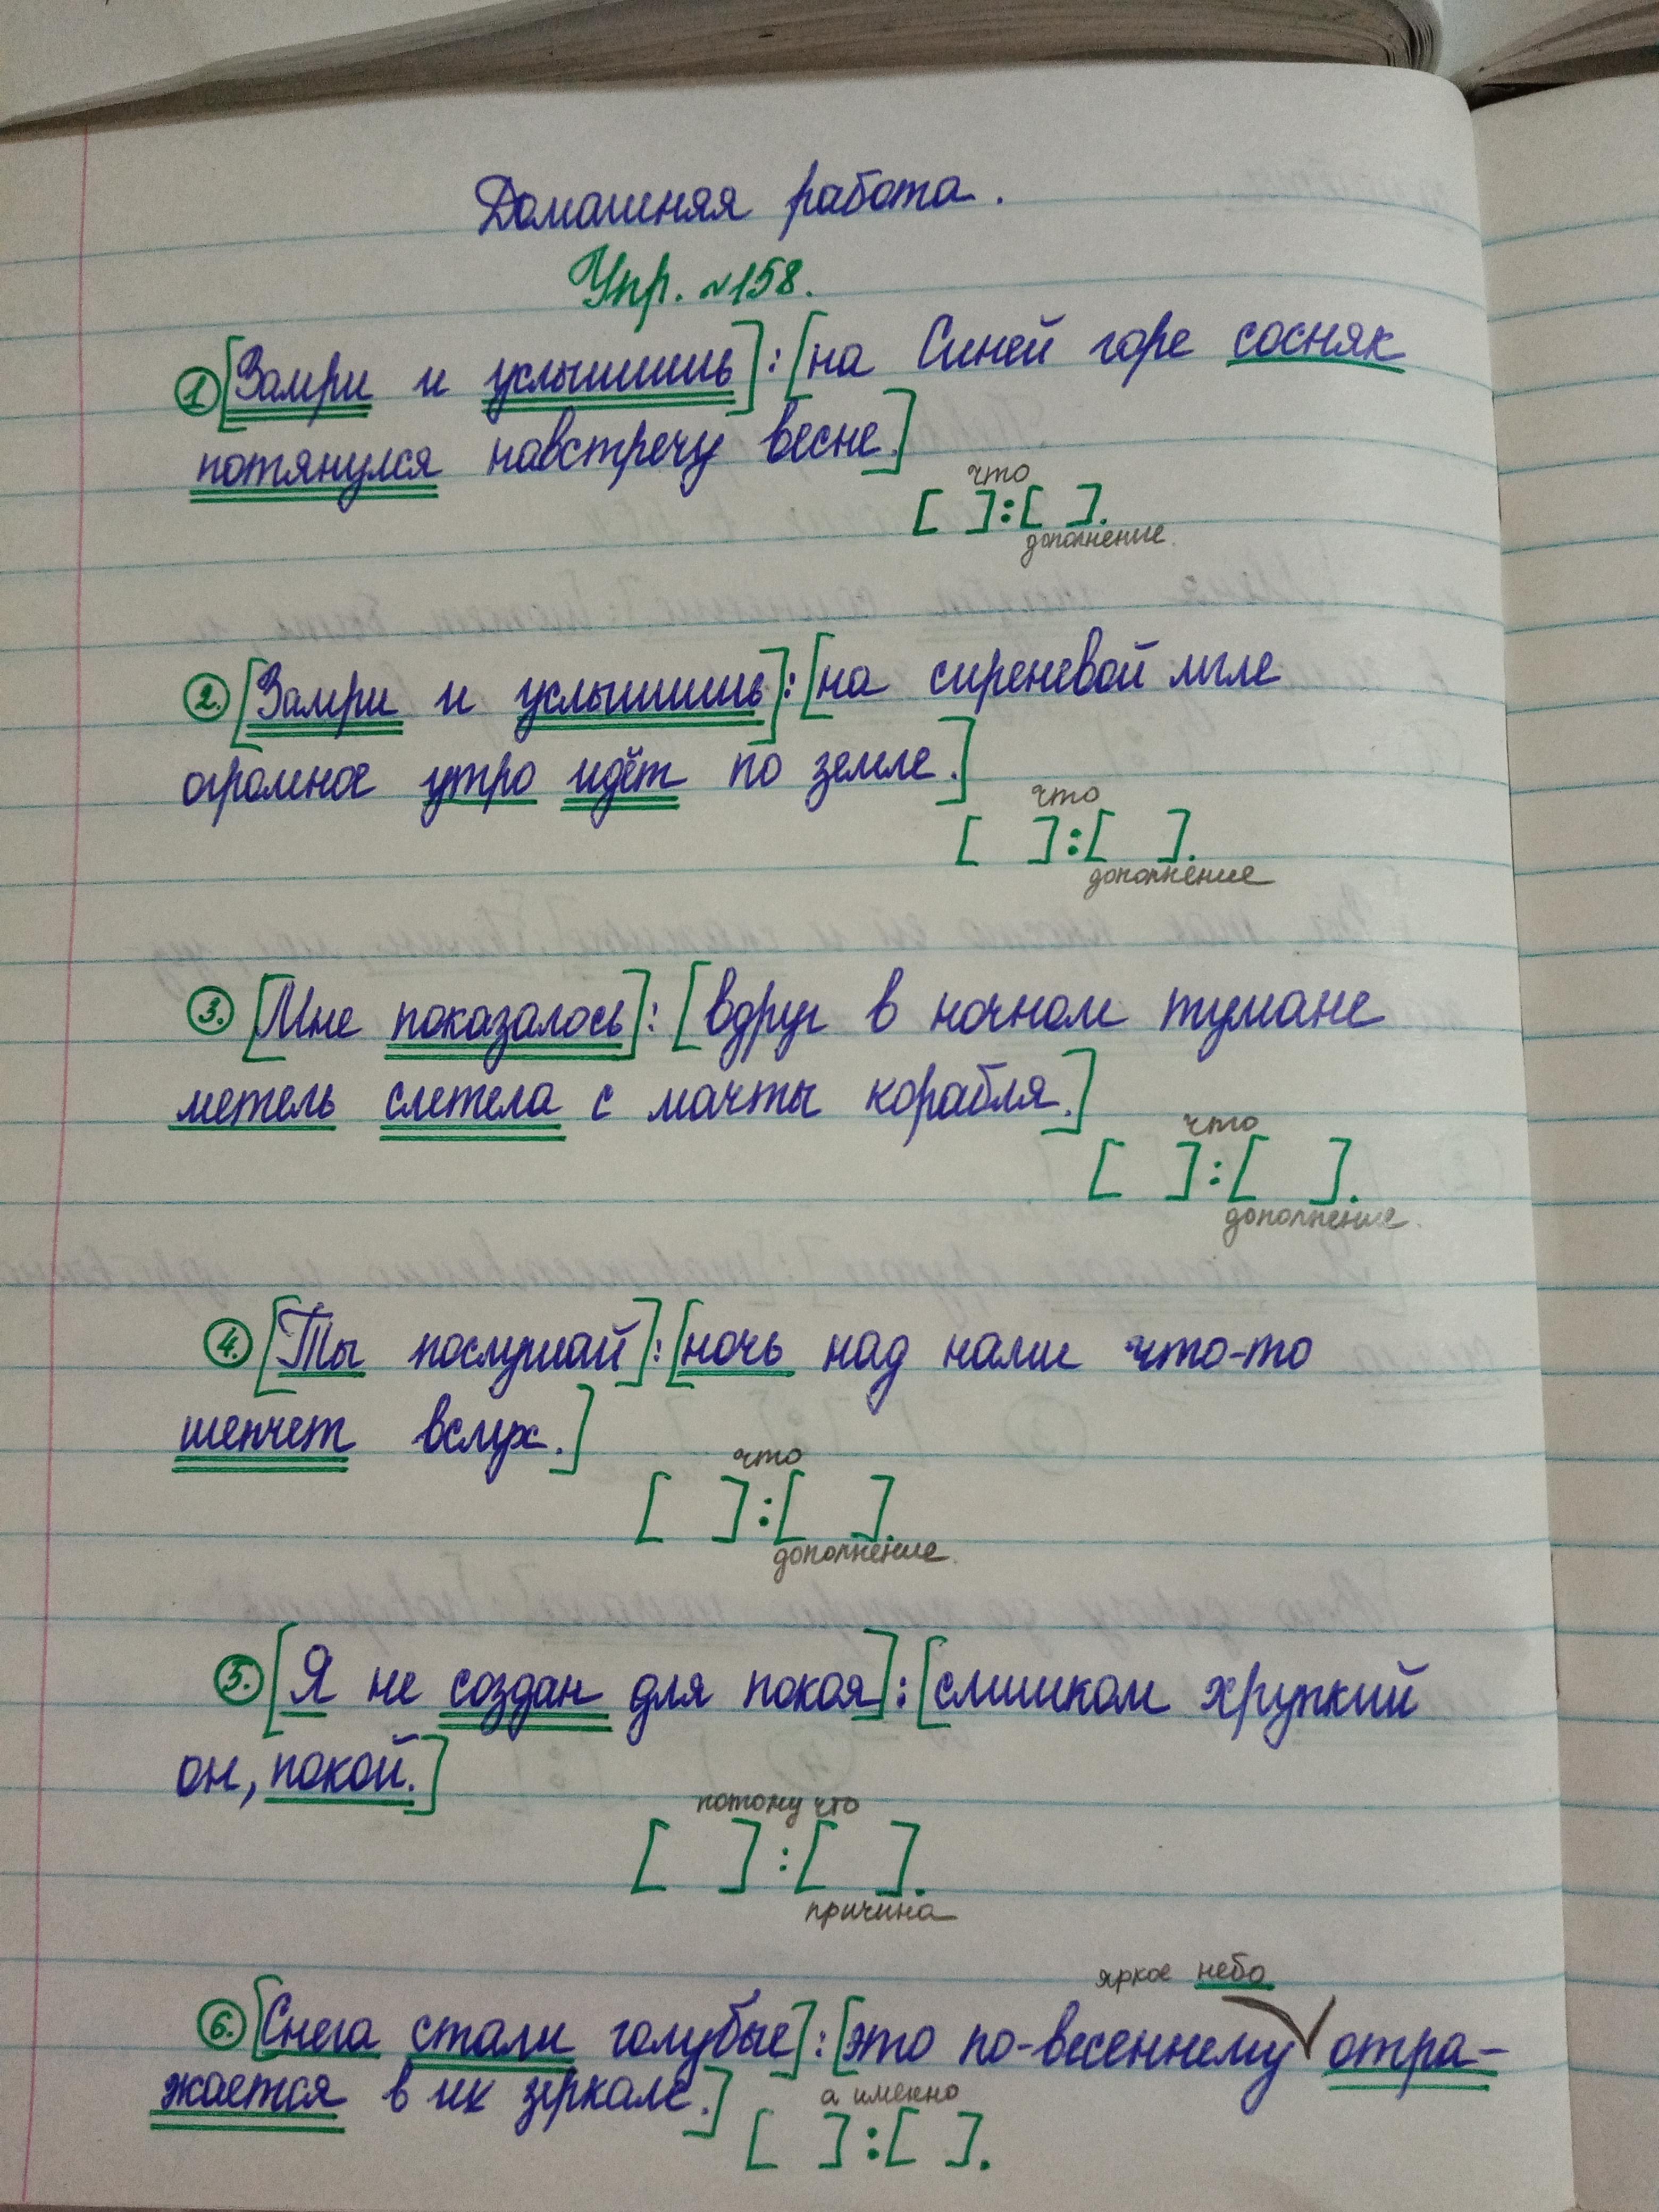 Домашняя работа.
Упр. №158.
1 [Замри и услышишь]: [на Синей горе сосняк
потянулся навстречу весне.]
что
[ ]:[ ].
дополнение.
2. [Замри и услышишь]: [на сиреневой мгле
огромное утро идёт по земле.]
что
[ ]:[ ].
дополнение
3. [Мне показалось]: [вдруг в ночном тумане
метель слетела с мачты корабля.]
что
[ ]:[ ].
дополнение.
4. [Ты послушай]: [ночь над нами что-то
шепчет вслух.]
что
[ ]:[ ].
дополнение.
5. [Я не создан для покоя]: [слишком хрупкий
он, покой.]
потому что
[ ]:[ ].
причина
яркое небо
6. [Снега стали голубые]: [это по-весеннему отра-
жается в их зеркале.]
а именно
[ ]:[ ].